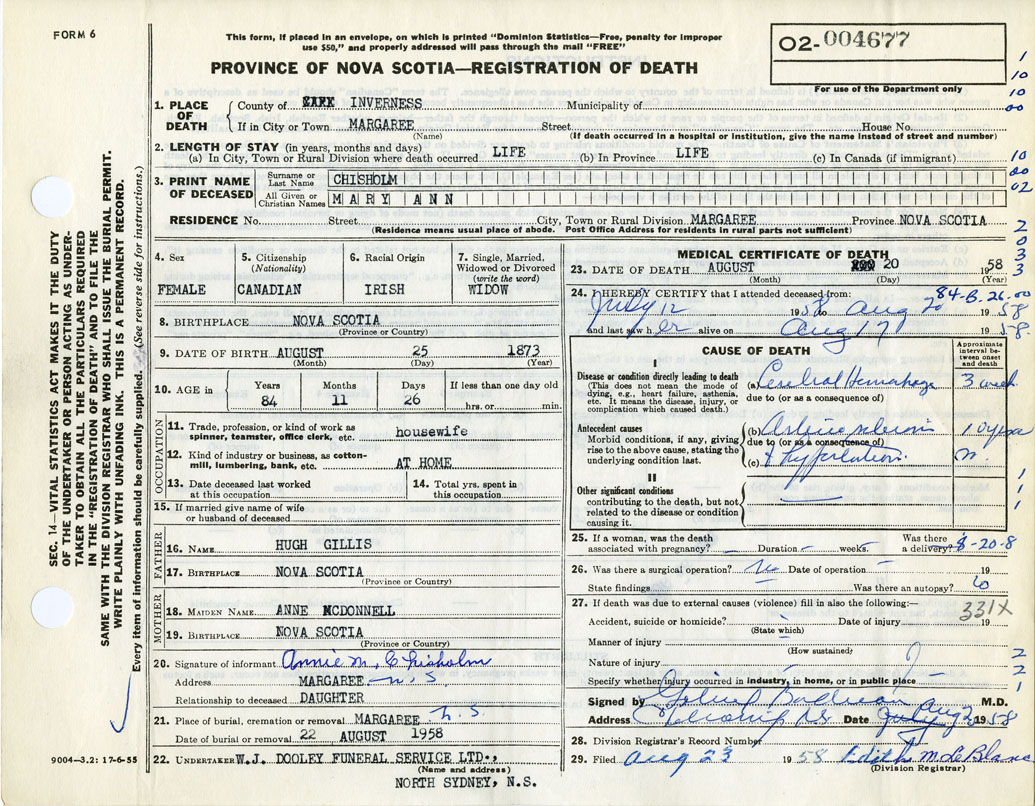 FORM 6
This form, if placed in an envelope, on which is printed "Dominion Statistics—Free, penalty for improper
use $50," and properly addressed will pass through the mail "FREE"
PROVINCE OF NOVA SCOTIA—REGISTRATION OF DEATH
02-004677
For use of the Department only
1. PLACE OF DEATH
County of INVERNESS Municipality of
If in City or Town MARGAREE Street House No.
(Name) (If death occurred in a hospital or institution, give the name instead of street and number)
2. LENGTH OF STAY (in years, months and days)
(a) In City, Town or Rural Division where death occurred LIFE (b) In Province LIFE (c) In Canada (if immigrant)
3. PRINT NAME OF DECEASED
Surname or Last Name CHISHOLM
All Given or Christian Names MARY ANN
RESIDENCE No. Street City, Town or Rural Division MARGAREE Province NOVA SCOTIA
(Residence means usual place of abode. Post Office Address for residents in rural parts not sufficient)
4. Sex
FEMALE
5. Citizenship
(Nationality)
CANADIAN
6. Racial Origin
IRISH
7. Single, Married,
Widowed or Divorced
(write the word)
WIDOW
8. BIRTHPLACE NOVA SCOTIA
(Province or Country)
9. DATE OF BIRTH AUGUST 25 1873
(Month) (Day) (Year)
10. AGE in
Years Months Days If less than one day old
84 11 26 hrs. or min.
OCCUPATION
11. Trade, profession, or kind of work as
spinner, teamster, office clerk, etc. housewife
12. Kind of industry or business, as cotton-
mill, lumbering, bank, etc. AT HOME
13. Date deceased last worked
at this occupation
14. Total yrs. spent in
this occupation
15. If married give name of wife
or husband of deceased
FATHER
16. NAME HUGH GILLIS
17. BIRTHPLACE NOVA SCOTIA
(Province or Country)
MOTHER
18. MAIDEN NAME ANNE MCDONNELL
19. BIRTHPLACE NOVA SCOTIA
(Province or Country)
20. Signature of informant Annie M. Chisholm
Address MARGAREE N.S.
Relationship to deceased DAUGHTER
21. Place of burial, cremation or removal MARGAREE N.S.
Date of burial or removal 22 AUGUST 1958
22. UNDERTAKER W.J. DOOLEY FUNERAL SERVICE LTD.,
(Name and address)
NORTH SYDNEY, N.S.
MEDICAL CERTIFICATE OF DEATH
23. DATE OF DEATH AUGUST 20 1958
(Month) (Day) (Year)
84-B. 26-00
24. I HEREBY CERTIFY that I attended deceased from:
July 12 1958 to Aug 20 1958
and last saw her alive on Aug 17 1958
CAUSE OF DEATH
Approximate
interval be-
tween onset
and death
I
Disease or condition directly leading to death
(This does not mean the mode of
dying, e.g., heart failure, asthenia,
etc. It means the disease, injury, or
complication which caused death.)
(a) Cerebral Hemorrhage 3 week
due to (or as a consequence of)
Antecedent causes
Morbid conditions, if any, giving
rise to the above cause, stating the
underlying condition last.
(b) Arteriosclerosis 10 years
due to (or as a consequence of)
(c) + Hypertension
II
Other significant conditions
contributing to the death, but not
related to the disease or condition
causing it.
25. If a woman, was the death
associated with pregnancy? Duration weeks. Was there
a delivery? 8-20-8
26. Was there a surgical operation? No Date of operation 19
State findings Was there an autopsy?
27. If death was due to external causes (violence) fill in also the following:—
331X
Accident, suicide or homicide? Date of injury 19
(State which)
Manner of injury
(How sustained)
Nature of injury
Specify whether injury occurred in industry, in home, or in public place
Signed by M.D.
Address Date Aug 1958
28. Division Registrar's Record Number
29. Filed Aug 23 1958 Edith M. LeBlanc
(Division Registrar)
SEC. 14—VITAL STATISTICS ACT MAKES IT THE DUTY
OF THE UNDERTAKER OR PERSON ACTING AS UNDER-
TAKER TO OBTAIN ALL THE PARTICULARS REQUIRED
IN THE "REGISTRATION OF DEATH" AND TO FILE THE
SAME WITH THE DIVISION REGISTRAR WHO SHALL ISSUE THE BURIAL PERMIT.
WRITE PLAINLY WITH UNFADING INK. THIS IS A PERMANENT RECORD.
Every item of information should be carefully supplied. (See reverse side for instructions.)
9004—3.2: 17-6-55
1
10
10
00
10
00
02
2
0
3
3
1
1
1
2
2
1